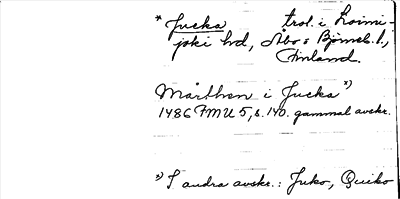 * Jucka trol. i Loimi-
joki hd, Åbo o Björneb. l.,
Finland.
Mårthen i Jucka *)
1486 FMU 5, s. 140. gammal avskr.
*) I andra avskr.: Juko, Quiko